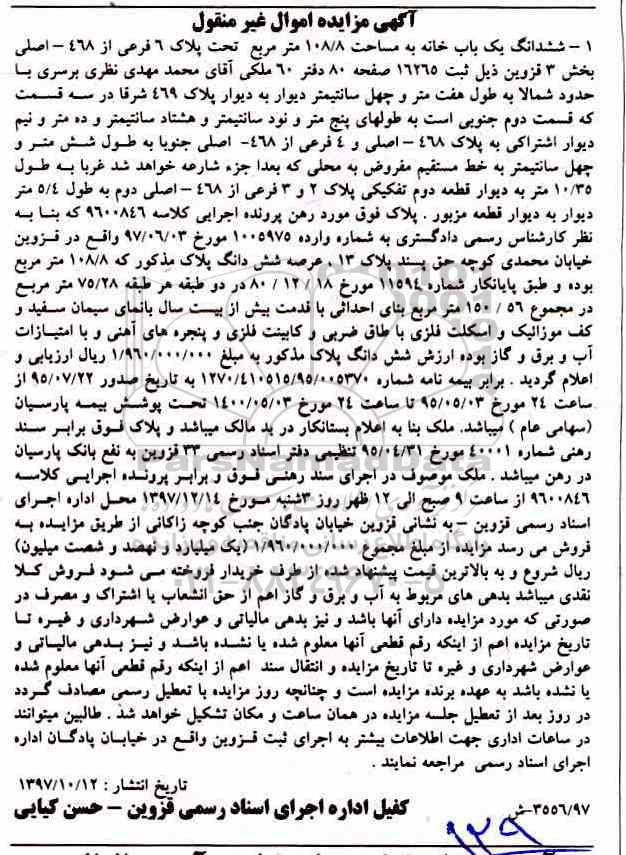 آگهی مزایده اموال غیر منقول
۱ – ششدانگ یک باب خانه به مساحت ۱۰۸/۸ متر مربع تحت پلاک ۶ فرعی از ۴۶۸ – اصلی
بخش ۳ قزوین ذیل ثبت ۱۶۲۶۵ صفحه ۸۰ دفتر ۶۰ ملکی آقای محمد مهدی نظری برسری با
حدود شمالا به طول هفت متر و چهل سانتیمتر دیوار به دیوار پلاک ۴۶۹ شرقا در سه قسمت
که قسمت دوم جنوبی است به طولهای پنج متر و نود سانتیمتر و هشتاد سانتیمتر و ده متر و نیم
دیوار اشتراکی به پلاک ۴۶۸ – اصلی و ۴ فرعی از ۴۶۸- اصلی جنوبا به طول شش متر و
چهل سانتیمتر به خط مستقیم مفروض به محلی که بعدا جزء شارعه خواهد شد غربا به طول
۱۰/۳۵ متر به دیوار قطعه دوم تفکیکی پلاک ۲ و ۳ فرعی از ۴۶۸ – اصلی دوم به طول ۵/۴ متر
دیوار به دیوار قطعه مزبور . پلاک فوق مورد رهن پرونده اجرایی کلاسه ۹۶۰۰۸۴۶ که بنا به
نظر کارشناس رسمی دادگستری به شماره وارده ۱۰۰۵۹۷۵ مورخ ۹۷/۰۶/۰۳ واقع در قزوین
خیابان محمدی کوچه حق پسند پلاک ۱۳ , عرصه شش دانگ پلاک مذکور که ۱۰۸/۸ متر مربع
بوده و طبق پایانکار شماره ۱۱۵۹۴ مورخ ۱۸ / ۱۲ / ۸۰ در دو طبقه هر طبقه ۷۵/۲۸ متر مربع
در مجموع ۵۶ / ۱۵۰ متر مربع بنای احداثی با قدمت بیش از بیست سال بانمای سیمان سفید و
کف موزائیک و اسکلت فلزی با طاق ضربی و کابینت فلزی و پنجره های آهنی و با امتیازات
آب و برق و گاز بوده ارزش شش دانگ پلاک مذکور به مبلغ ۱/۹۶۰/۰۰۰/۰۰۰ ریال ارزیابی و
اعلام گردید . برابر بیمه نامه شماره ۱۲۷۰/۴۱۰۵۱۵/۹۵/۰۰۵۳۷۰ به تاریخ صدور ۹۵/۰۷/۲۲ از
ساعت ۲۴ مورخ ۹۵/۰۵/۰۳ تا ساعت ۲۴ مورخ ۱۴۰۰/۰۵/۰۳ تحت پوشش بیمه پارسیان
(سهامی عام ) میباشد. ملک بنا به اعلام بستانکار در ید مالک میباشد و پلاک فوق برابر سند
رهنی شماره ۴۰۰۰۱ مورخ ۹۵/۰۴/۳۱ تنظیمی دفتر اسناد رسمی ۳۳ قزوین به نفع بانک پارسیان
در رهن میباشد . ملک موصوف در اجرای سند رهنی فوق و برابر پرونده اجرایی کلاسه
۹۶۰۰۸۴۶ از ساعت ۹ صبح الی ۱۲ ظهر روز ۳شنبه مورخ ۱۳۹۷/۱۲/۱۴ محل اداره اجرای
اسناد رسمی قزوین – به نشانی قزوین خیابان پادگان جنب کوچه زاکانی از طریق مزایده به
فروش می رسد مزایده از مبلغ مجموع ۱/۹۶۰/۰۰۰/۰۰۰ (یک میلیارد و نهصد و شصت میلیون)
ریال شروع و به بالاترین قیمت پیشنهاد شده از طرف خریدار فروخته می شود فروش کلا
نقدی میباشد بدهی های مربوط به آب و برق و گاز اعم از حق انشعاب یا اشتراک و مصرف در
صورتی که مورد مزایده دارای آنها باشد و نیز بدهی مالیاتی و عوارض شهرداری و غیره تا
تاریخ مزایده اعم از اینکه رقم قطعی آنها معلوم شده یا نشده باشد و نیز بدهی مالیاتی و
عوارض شهرداری و غیره تا تاریخ مزایده و انتقال سند اعم از اینکه رقم قطعی آنها معلوم شده
یا نشده باشد به عهده برنده مزایده است و چنانچه روز مزایده با تعطیل رسمی مصادف گردد
در روز بعد از تعطیل جلسه مزایده در همان ساعت و مکان تشکیل خواهد شد . طالبین میتوانند
در ساعات اداری جهت اطلاعات بیشتر به اجرای ثبت قزوین واقع در خیابان پادگان اداره
اجرای اسناد رسمی مراجعه نمایند .
تاریخ انتشار : ۱۳۹۷/۱۰/۱۲
۳۵۵۶/۹۷-ش کفیل اداره اجرای اسناد رسمی قزوین – حسن کیایی
۱۲۹
ParsNamadData
۰۲۱-۸۸۳۴۹۶۷۰-۵